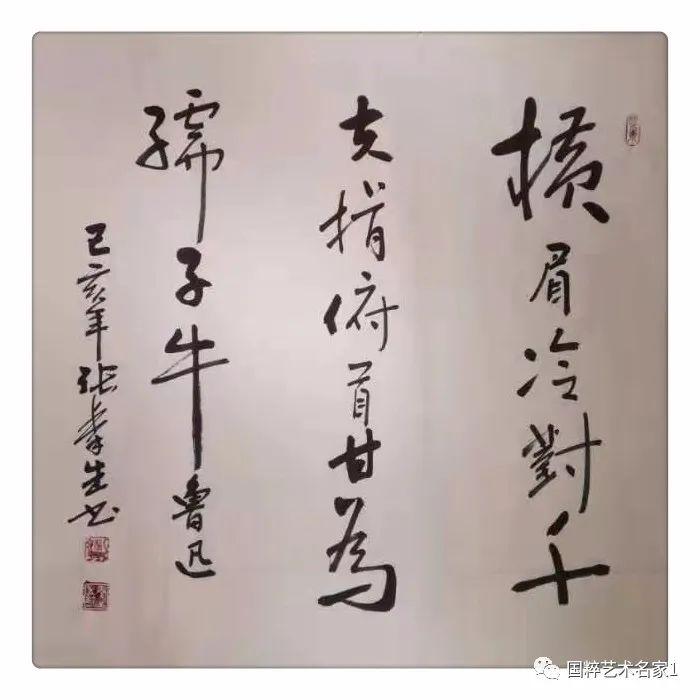 横眉冷對千
夫指俯首甘為
孺子牛 魯迅
己亥年 张生书
国粹艺术名家1